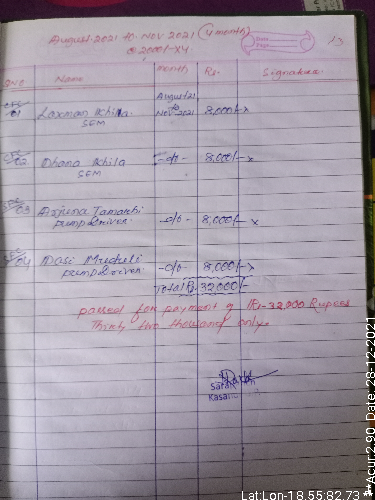 August-2021 to Nov 2021 (4 month)
@ 2000/- X4
Date
Page
13
Name month Rs. Signature
01 Laxman Khila August 21 to Nov-2021 8,000/- x
SEM
02 Dhana Khila -do- 8,000/- x
SEM
03 Arjuna Tamarchi -do- 8,000/- x
pump driver
04 Dasi Mucheli -do- 8,000/- x
pump driver
Total Rs. 32,000/-
passed for payment of Rs- 32,000 Rupees
Thirty two thousand only
Lat:Lon-18.55:82.73
**Acur:2.90 Date: 28-12-2021